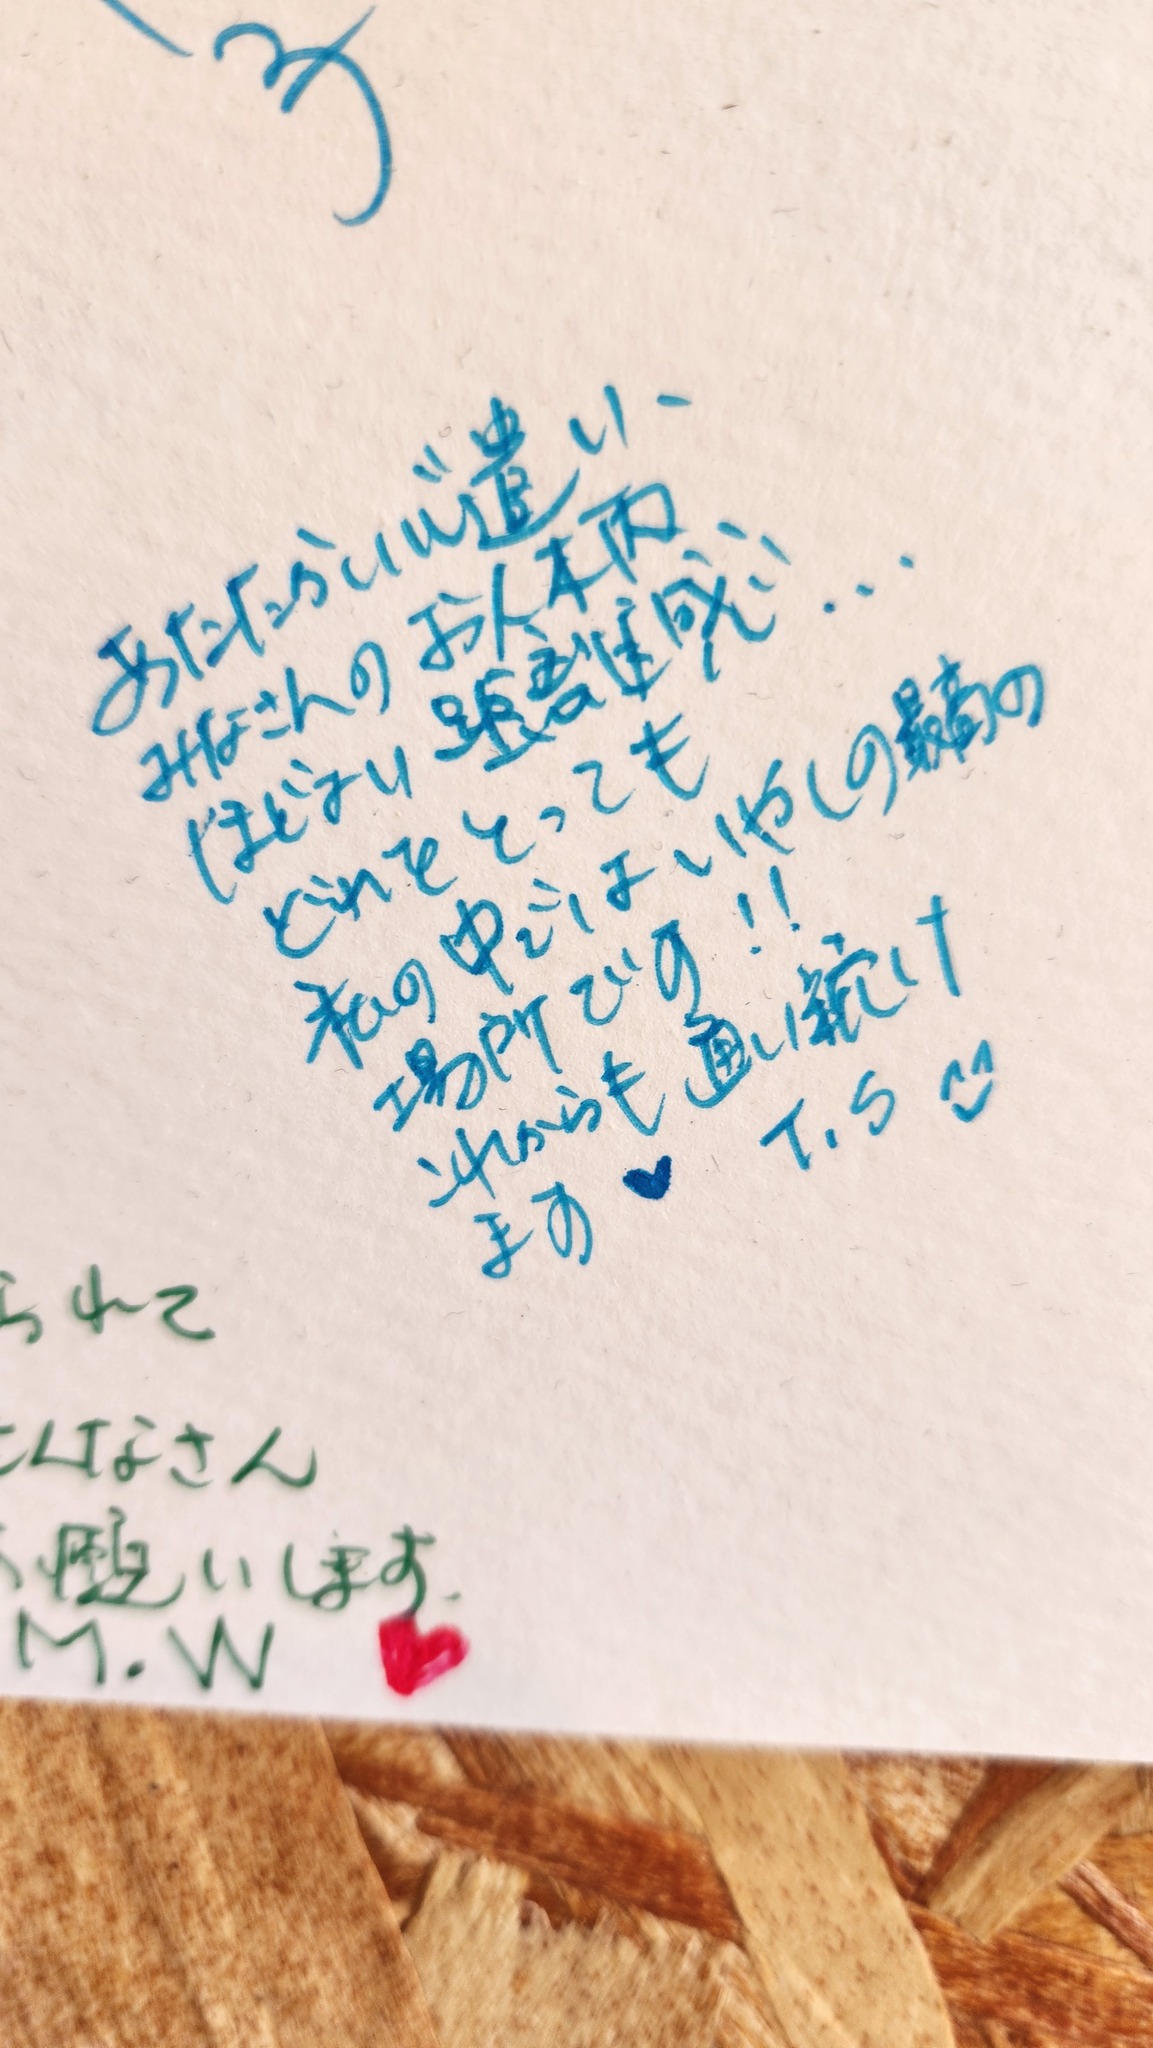 す
あたたかい心遣い、
みなさんのお人柄
ほどよい距離感…
どれをとっても
私の中ではいやしの最高の
場所です!!
これからも通い続け
ます♥ T.S
られて
みなさん
お願いします。
M.W ♥